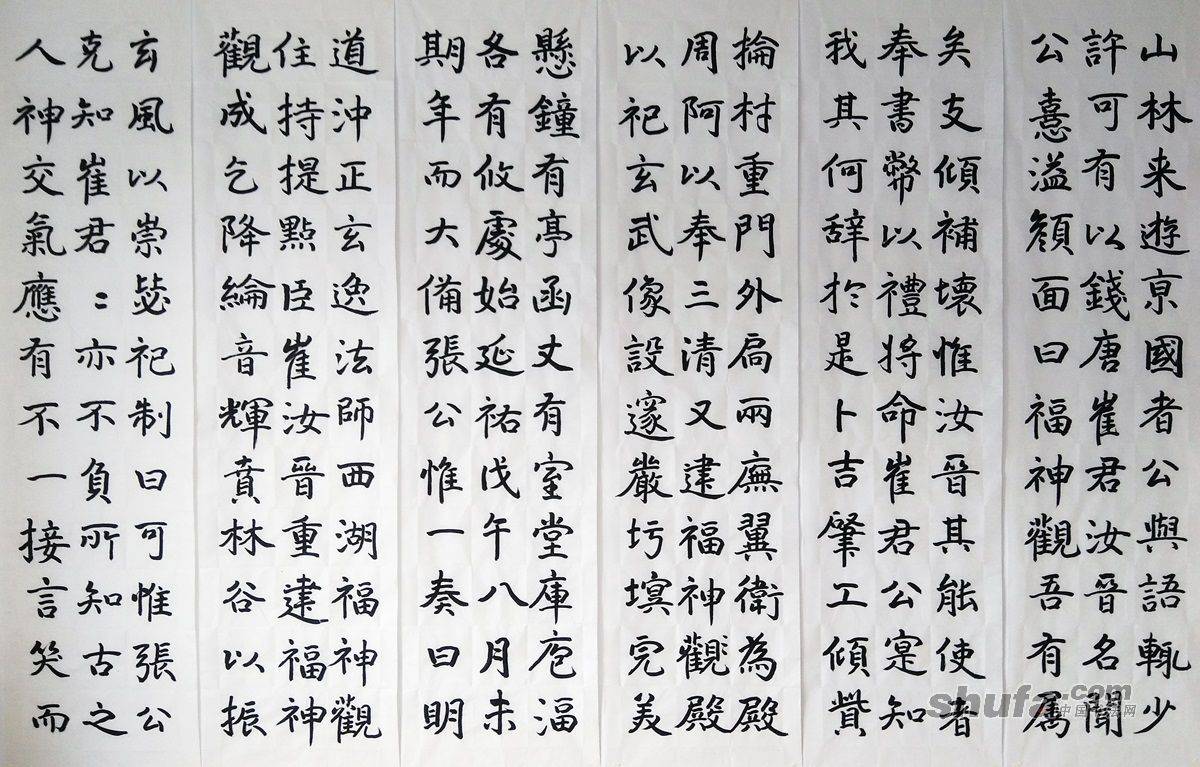 山林来遊京國者公與語輒少
許可有以錢唐崔君汝晉名聞
公憙溢顏面曰福神觀吾有屬
矣支傾補壞惟汝晉其能使者
奉書幣以禮將命崔君公寔知
我其何辭於是卜吉肇工傾貲
掄材重門外扃兩廡翼衛為殿
周阿以奉三清又建福神觀殿
以祀玄武像設邃嚴圬墁完美
懸鐘有亭函丈有室堂庫庖湢
各有攸處始延祐戊午八月未
期年而大備張公惟一奏曰明
道沖正玄逸法師西湖福神觀
住持提點臣崔汝晉重建福神
觀成乞降綸音輝賁林谷以振
玄風以崇毖祀制曰可惟張公
克知崔君〻亦不負所知古之
人神交氣應有不一接言笑而
shufa.com